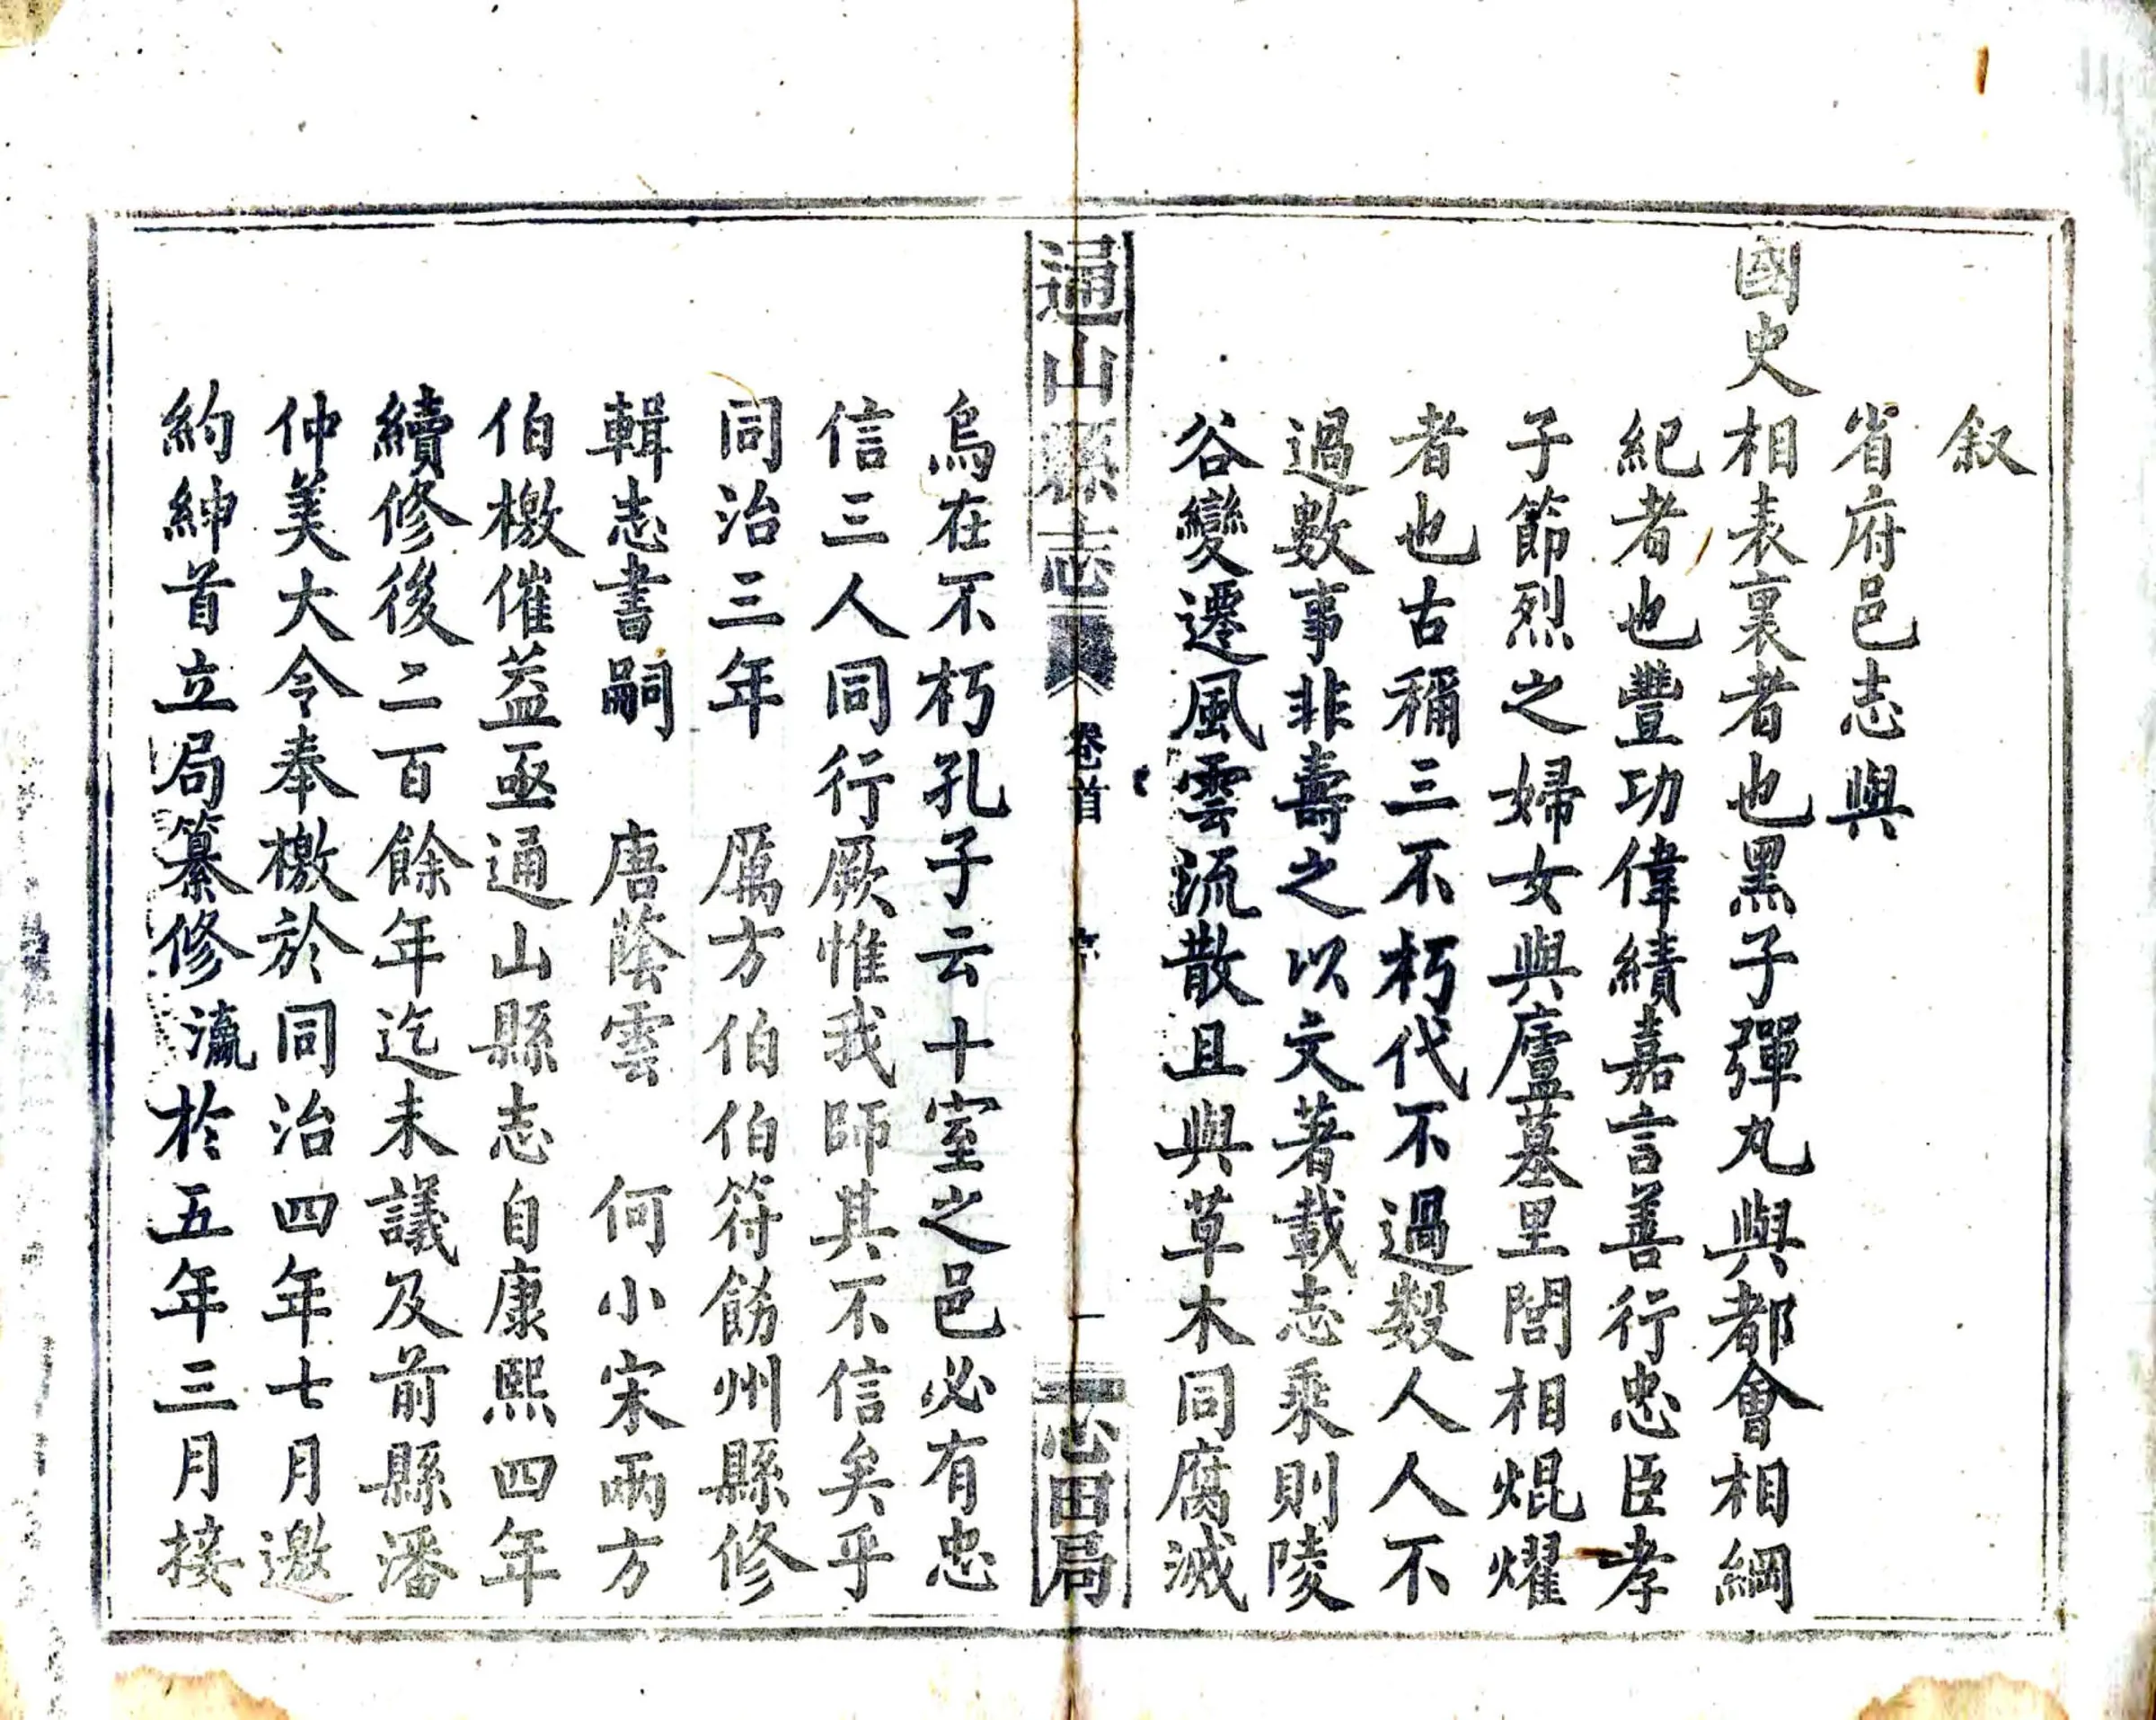 叙
省府邑志與
國史相表裏者也黑子彈丸與都會相綱
紀者也豐功偉績嘉言善行忠臣孝
子節烈之婦女與廬墓里閭相焜燿
者也古稱三不朽代不過數人人不
過數事非壽之以文著載志乘則陵
谷變遷風雲流散且與草木同腐滅
通山縣志
卷首
序
一
志田局
烏在不朽孔子云十室之邑必有忠
信三人同行厥惟我師其不信矣乎
同治三年 厲方伯伯符飭州縣修
輯志書嗣 唐蔭雲 何小宋兩方
伯檄催益亟通山縣志自康熙四年
續修後二百餘年迄未議及前縣潘
仲美大令奉檄於同治四年七月邀
約紳首立局纂修瀛於五年三月接